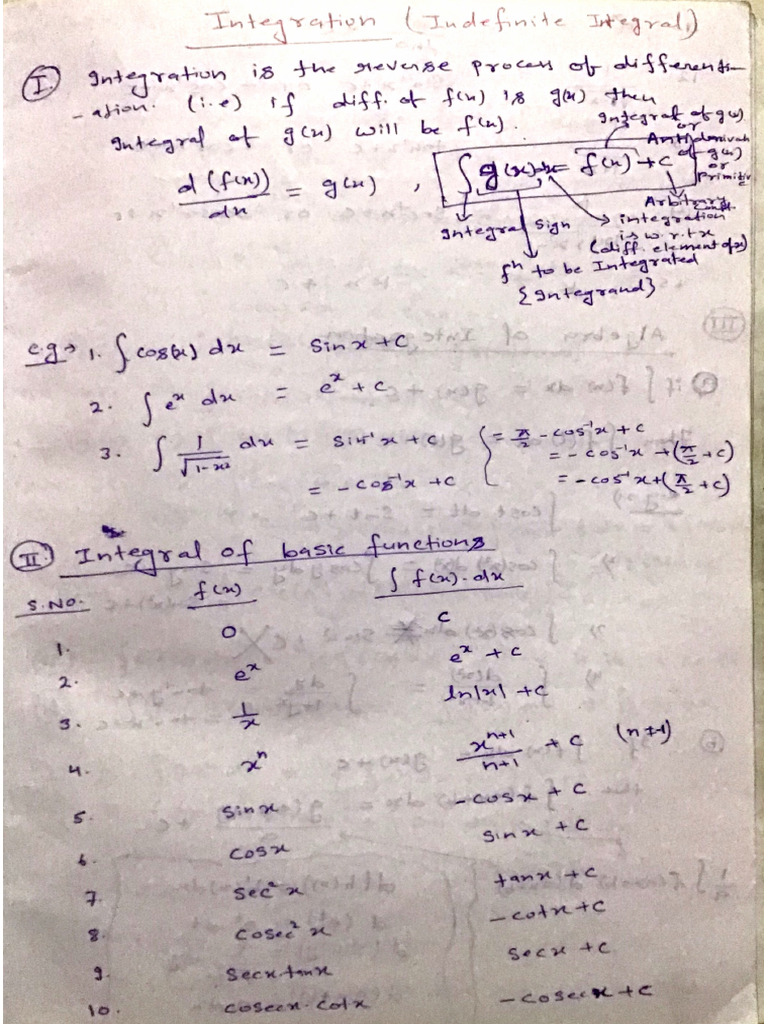 Integration (Indefinite Integral)
I. Integration is the reverse process of differenti-
-ation. (i.e) if diff. of f(x) is g(x) then
Integral of g(x) will be f(x).
d(f(x))/dx = g(x) , ∫ g(x)dx = f(x) + c
Integral of g(x)
or
Antiderivati
of g(x)
or
Primitiv
Arbitrary const.
Integral Sign
integration
is w.r.t x
(diff. element of x)
fⁿ to be Integrated
{Integrand}
e.g → 1. ∫ cos(x) dx = Sin x + c
2. ∫ eˣ dx = eˣ + c
3. ∫ 1/√(1-x²) dx = Sin⁻¹x + c { = π/2 - cos⁻¹x + c
= - cos⁻¹x + (π/2 + c)
= - cos⁻¹x + c = - cos⁻¹x + (π/2 + c)
II. Integral of basic functions
S.NO. f(x) ∫ f(x).dx
1. 0 c
2. eˣ eˣ + c
3. 1/x ln|x| + c
4. xⁿ xⁿ⁺¹/n+1 + c (n≠-1)
5. Sinx -cosx + c
6. cosx sinx + c
7. sec²x tanx + c
8. cosec²x -cotx + c
9. secx.tanx secx + c
10. cosecx.cotx -cosecx + c